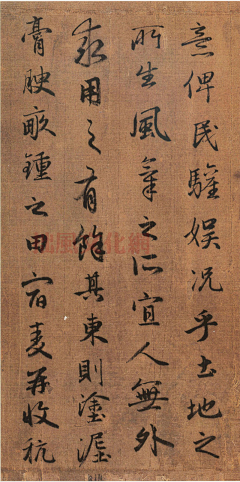 意俾民驩娱况乎土地之
所生風氣之所宜人無外
求用之有餘其東則塗泥
膏腴畝鍾之田宿麥再收秔